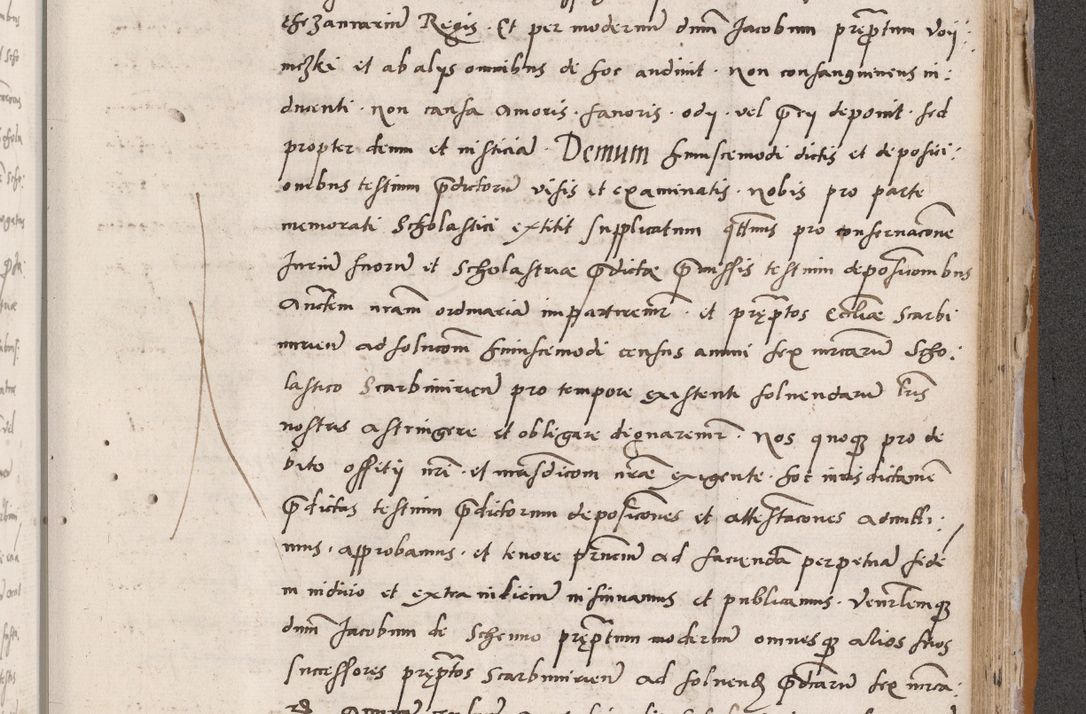 Regis · Et per modernum dnm Jacobum pręptum Voy:
et ab alys omnibus de hoc audivit · Non consanguineus in:
ducenti · non causa Amoris · fauoris · odij · vel deponit · sed
propter deum et iusticiā · Demum huiuscemodi dictis et deposici:
onibus testium pdictorū visis et examinatis · Nobis pro parte
memorati Scholastici extitit supplicatum qtenus pro conseruacone
Jurium suorū et Scholastriæ pdictæ pmissis testium deposicionibus
Auctem nram ordinariā impartiremr · et pręptos Eccliæ Scarbi
mirien ad solucom huiuscemodi census annui sex mrcarū Scho:
lastico Scarbimirien pro tempore existenti soluendarū Lris
nostris astringere et obligare dignaremr · Nos quoqz pro de
bito officij nri · et iurisdicom nræ exigente · hoc iuris dictamē
pdictas testium pdictorum deposicões et attestacones admitti:
mus · approbamus · et tenore pñcium ad faciendā perpetuā fidē
in iudicio et extra iudiciū insinuamus et publicamus · Venrlemqz
dnm Jacobum de pręptum modernū omnesqz alios suos
successores pręptos Scarbimirien ad soluend pdcarū sex mrca: